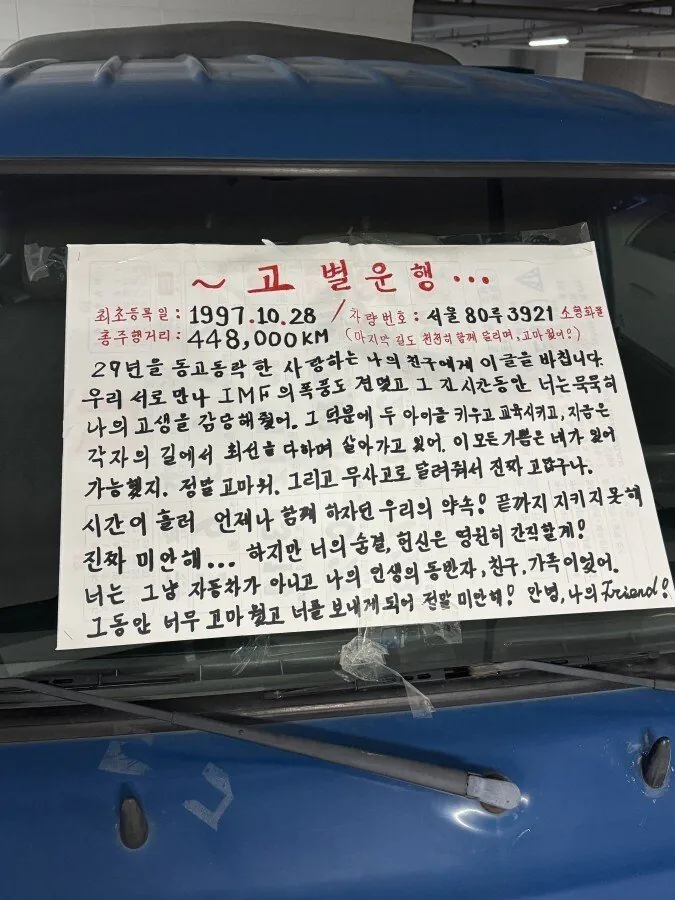 ~ 고 별 운 행 ...
최초등록일 : 1997.10.28 / 차량번호 : 서울 80루 3921 소형화물
총주행거리 : 448,000KM (마지막 길도 천천히 함께 달리며, 고마웠어!)
29년을 동고동락한 사랑하는 나의 친구에게 이 글을 바칩니다.
우리 서로 만나 IMF의 폭풍도 견뎠고 그 긴 시간동안 너는 묵묵히
나의 고생을 감당해 줬어. 그 덕분에 두 아이를 키우고 교육시키고, 지금은
각자의 길에서 최선을 다하며 살아가고 있어. 이 모든 기쁨은 네가 있어
가능했지. 정말 고마워. 그리고 무사고로 달려줘서 진짜 고맙구나.
시간이 흘러 언제나 함께 하자던 우리의 약속! 끝까지 지키지 못해
진짜 미안해... 하지만 너의 숨결, 헌신은 영원히 간직할게!
너는 그냥 자동차가 아니고 나의 인생의 동반자, 친구, 가족이었어.
그동안 너무 고마웠고 너를 보내게 되어 정말 미안해! 안녕, 나의 Friend!